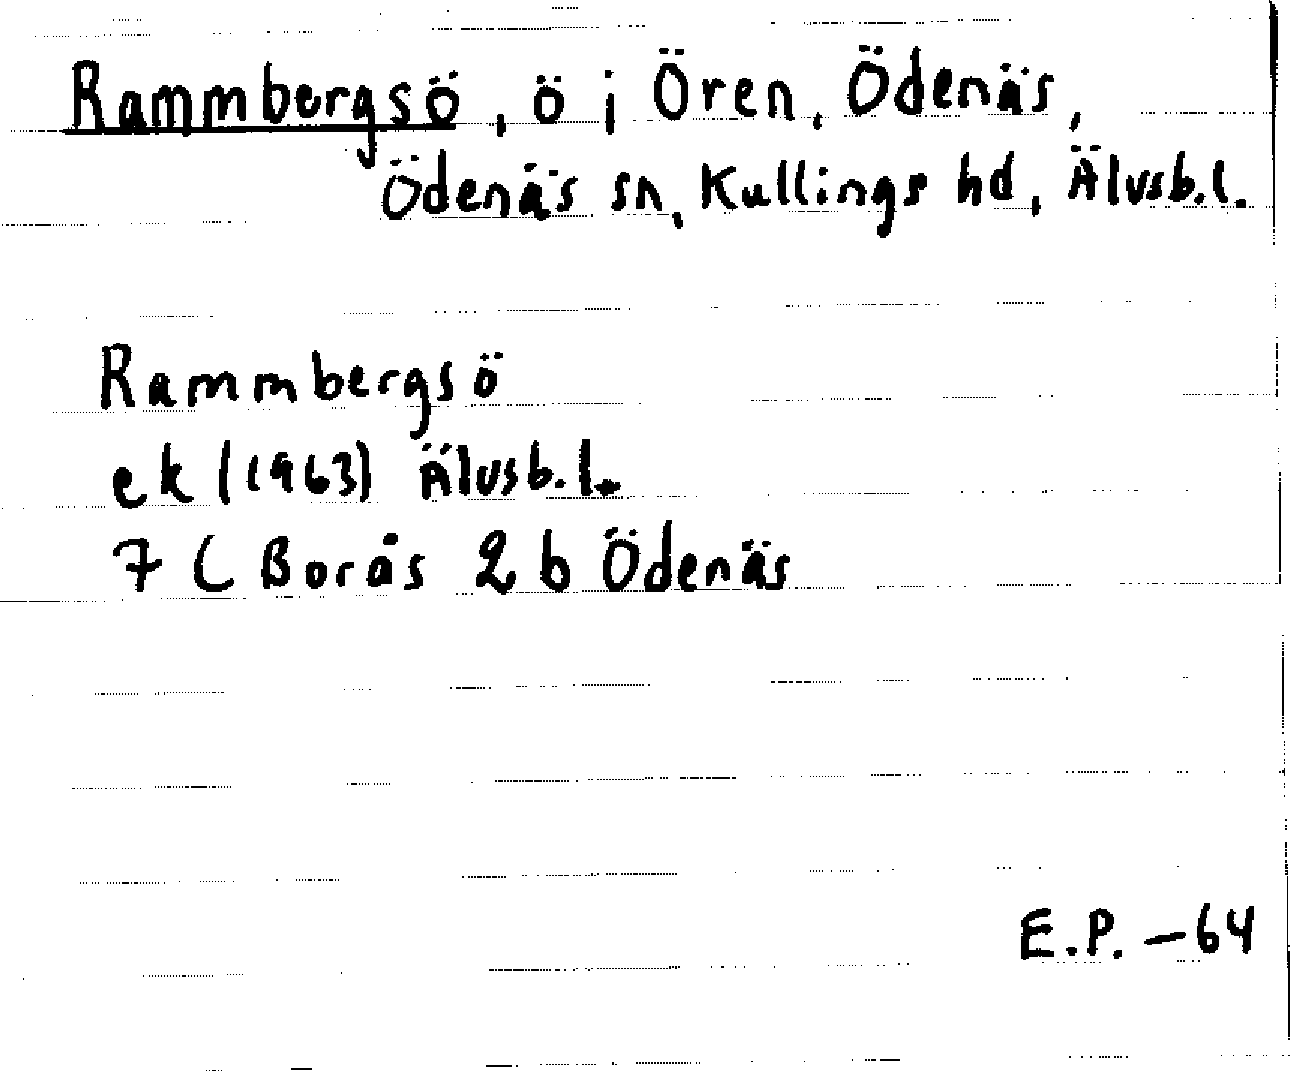 Rammbergsö, ö i Ören, Ödenäs,
Ödenäs sn, Kullings hd, Älvsb.l.
Rammbergsö
ek (1963) Älvsb.l.
7 C Borås 2 b Ödenäs
E.P. -64